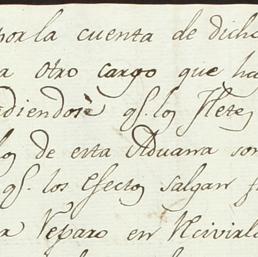 por la cuenta de dicho
a otro cargo que ha
diendose qs. los fletes
los de esta Aduana son
qs. los efectos salgan f
r reparo en recivirlo